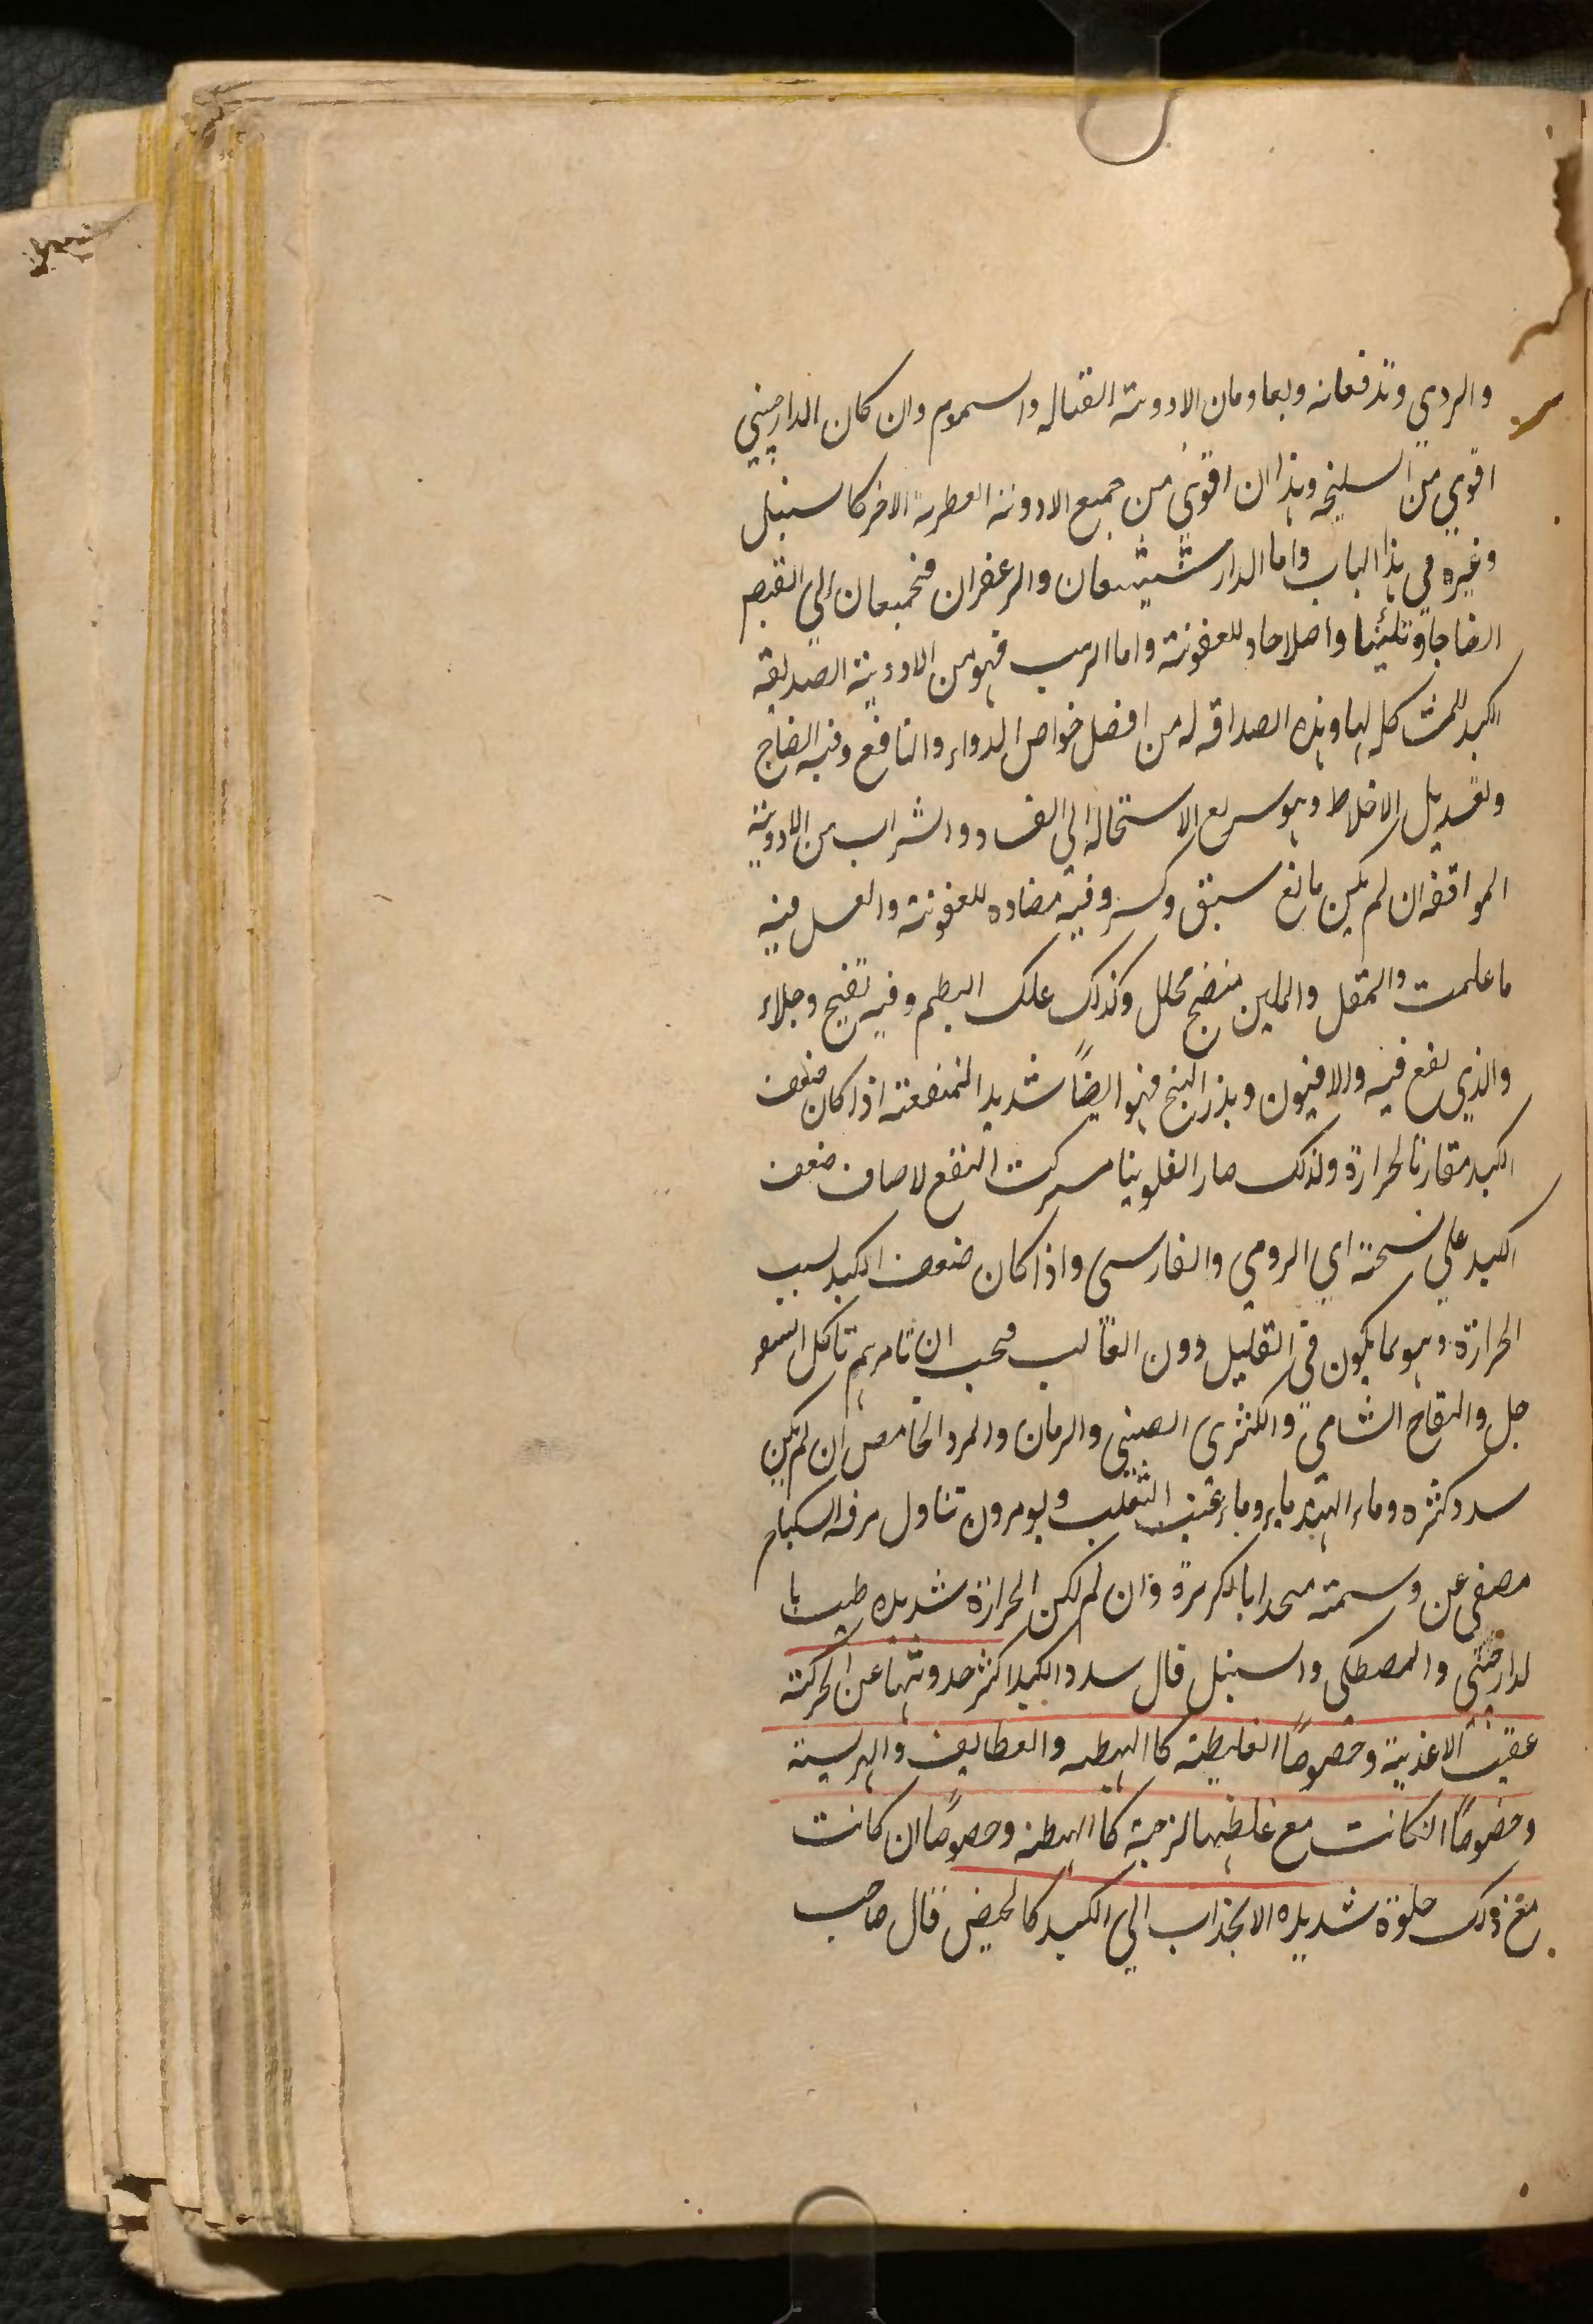 والردي وتدفعانه ويعاومان الادوية القتاله والسموم وان كان الدارصيني
اقوي من السليخه وهذا ان اقوي من جميع الادوية العطرية الاخر كالسنبل
وغيره في هذا الباب واما الدارشيشعان والزعفران فيجمعان الي القبض
انضاجا وتليينا واصلاحا للعفونة واما الزبيب فهو من الادوية الصديقة
الكبد للمشاكله لها وهذه الصداقه له من افضل خواص الدواء والنافع وفيه انضاج
وتعديل الاخلاط وهو سريع الاستحاله الي الفساد والشراب من الادوية
الموافقه ان لم يكن مانع سبق وكسر وفيه مضاده للعفونة والعسل فيه
ما علمت والمقل والملين منضج محلل وكذلك علك البطم وفيه تفتيح وجلاء
والذي ينفع فيه والافيون وبذر البنج فهو ايضاً شديد المنفعة اذا كان ضعف
الكبد مقارنا لحرارة ولذلك صار الفلونيا مشترك النفع لاصناف ضعف
الكبد علي نسخته اي الرومي والفارسي واذا كان ضعف الكبد بسبب
الحرارة وهو مما يكون في القليل دون الغالب فيجب ان تامرهم تاكل السفر
جل والتفاح الشامي والكمثري الصيني والرمان والمز والحامض ان لم يكن
سدد كثره وماء الهندباء وماء عنب الثعلب ويومرون تناول مرقه السكباج
مصفي عن دسمته متحدا بالكزبرة وان لم تكن الحرارة شديده طيبها با
لدارصيني والمصطكي والسنبل قال سدد الكبد اكثر حدوثها عن الحركة
عقيب الاغذية وخصوصاً الغليظة كالهبطه والقطايف والهريسة
وخصوصاً ان كانت مع غلظها لزجة كالهبطه وخصوصا ان كانت
مع ذلك حلوة شديده الانجذاب الي الكبد كالخبيص قال صاحب